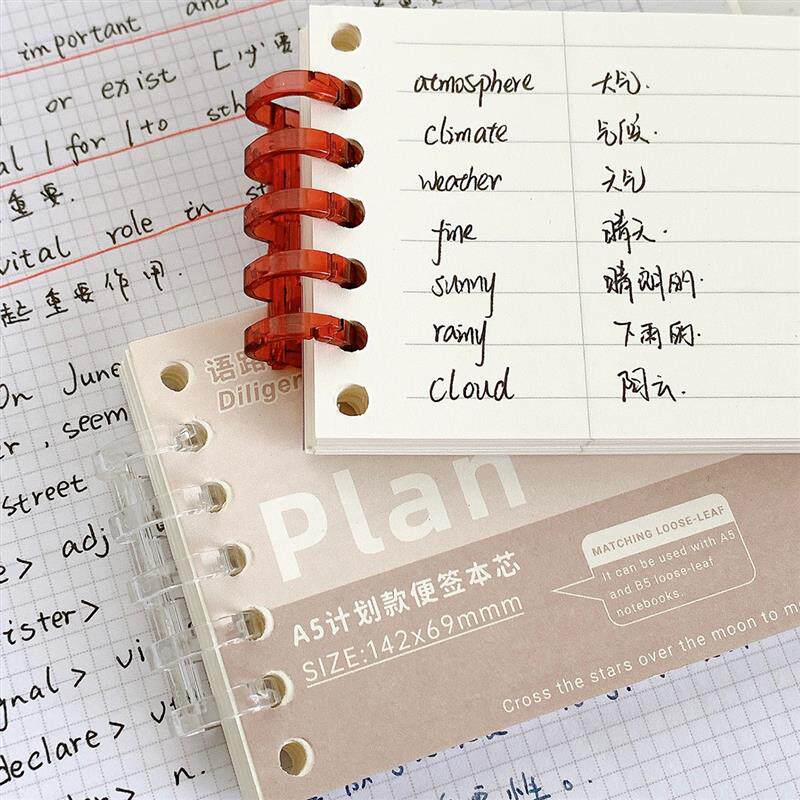 important and
or exist [必要
al / for / to sth
重要.
vital role in st
起重要作用.
On June
er, seem
street
e> adj
ister> vi
gnal> vt
declare> vt
n.
atmosphere 大气.
climate 气候.
weather 天气
fine 晴天.
sunny 晴朗的.
rainy 下雨的.
cloud 阴云.
语路
Diliger
Plan
A5计划款便签本芯
SIZE:142x69mmm
MATCHING LOOSE-LEAF
It can be used with A5
and B5 loose-leaf
notebooks.
Cross the stars over the moon to m
要性。